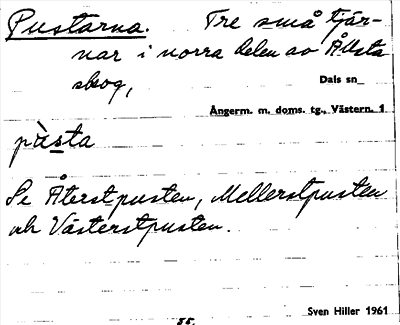 Pustarna. Tre små tjär-
nar i norra delen av Ållsta
skog,
Dals sn
Ångerm. m. doms. tg., Västern. 1
pù̀sta
Se Återstpusten, Mellerstpusten
och Västerstpusten.
Sven Hiller 1961
55.